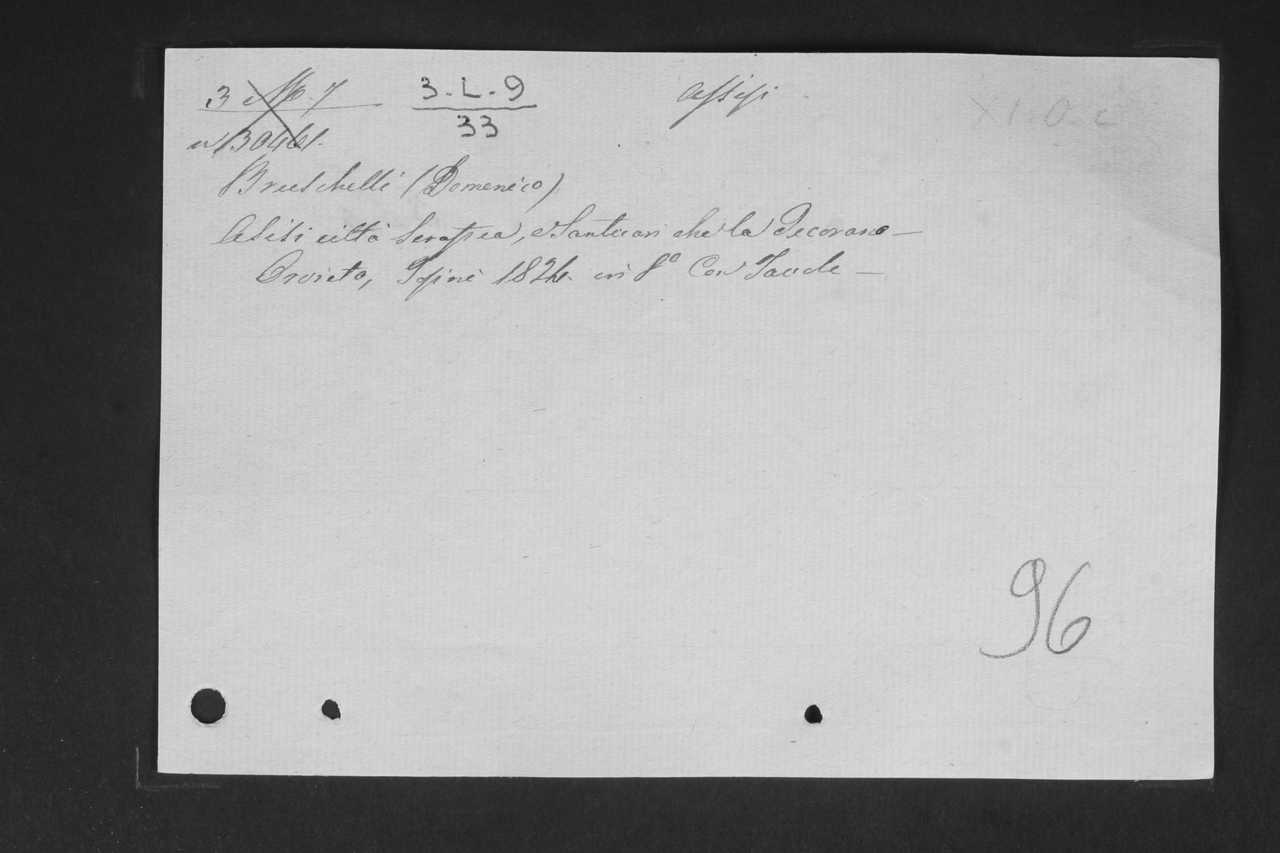 3 M. 7 3.-L.-9 Assisi XI. O. c
n 13046 33
Bruschelli (Domenico)
Asisi città Serafica, e Santuari che la Decorano —
Orvieto, Pompei 1824. in 8° Con Tavole —
96